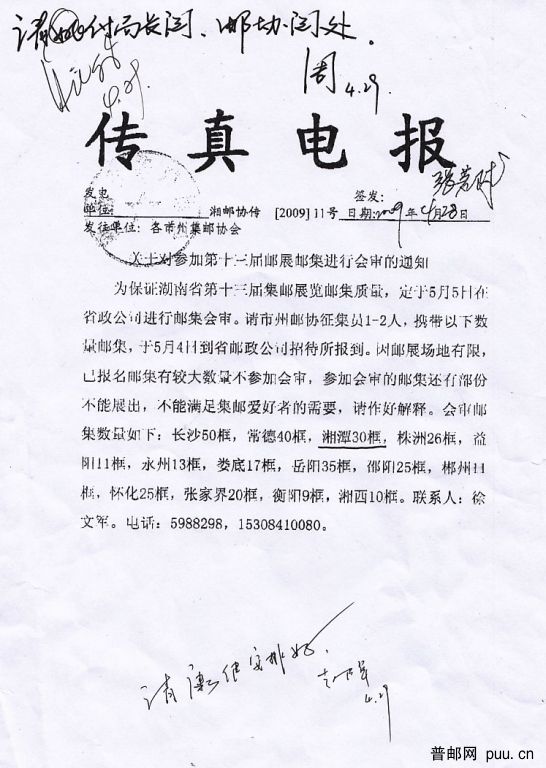 请 付局长阅、邮协阅处.
周 4.29.
4.29.
传真电报
发电 签发:
单位: 湘邮协传 [2009]11号 日期:2009年4月28日
发往单位: 各市州集邮协会
关于对参加第十三届邮展邮集进行会审的通知
为保证湖南省第十三届集邮展览邮集质量,定于5月5日在
省政公司进行邮集会审。请市州邮协征集员1-2人,携带以下数
量邮集,于5月4日到省邮政公司招待所报到。因邮展场地有限,
已报名邮集有较大数量不参加会审,参加会审的邮集还有部份
不能展出,不能满足集邮爱好者的需要,请作好解释。会审邮
集数量如下:长沙50框,常德40框,湘潭30框,株洲26框,益
阳11框,永州13框,娄底17框,岳阳35框,邵阳25框,郴州
框,怀化25框,张家界20框,衡阳9框,湘西10框。联系人:徐
文军。电话:5988298,15308410080。
请 安排好.
4.29
普邮网 puu.cn